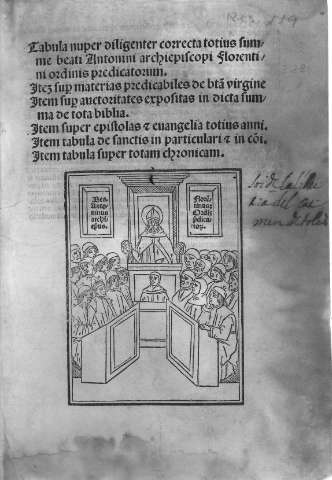 Tabula nuper diligenter correcta totius sum-
me beati Antonini archiepiscopi Florenti-
ni ordinis predicatorum.
Itez sup materias predicabiles de btā virgine
Item sup auctoritates expositas in dicta sum
ma de tota biblia.
Item super epistolas ⁊ euangelia totius anni.
Item tabula de sanctis in particulari ⁊ in cōi.
Item tabula super totam chronicam.
Antoninus
archiepūs.